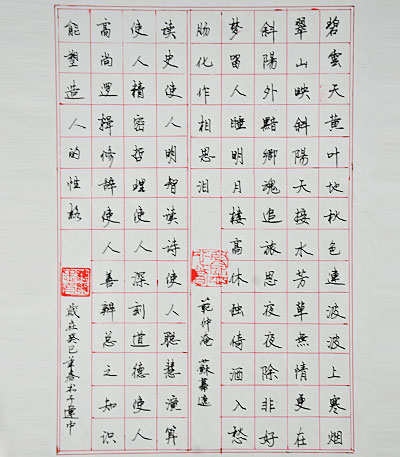 碧雲天黄叶地秋色連波波上寒烟
翠山映斜陽天接水芳草無情更在
斜陽外黯鄉魂追旅思夜夜除非好
夢留人睡明月樓高休独倚酒入愁
肠化作相思泪
範仲淹 蘇幕遮
读史使人明智读诗使人聪慧演算
使人精密哲理使人深刻道德使人
高尚逻辑修辞使人善辨总之知识
能塑造人的性格
歲在癸巳年春